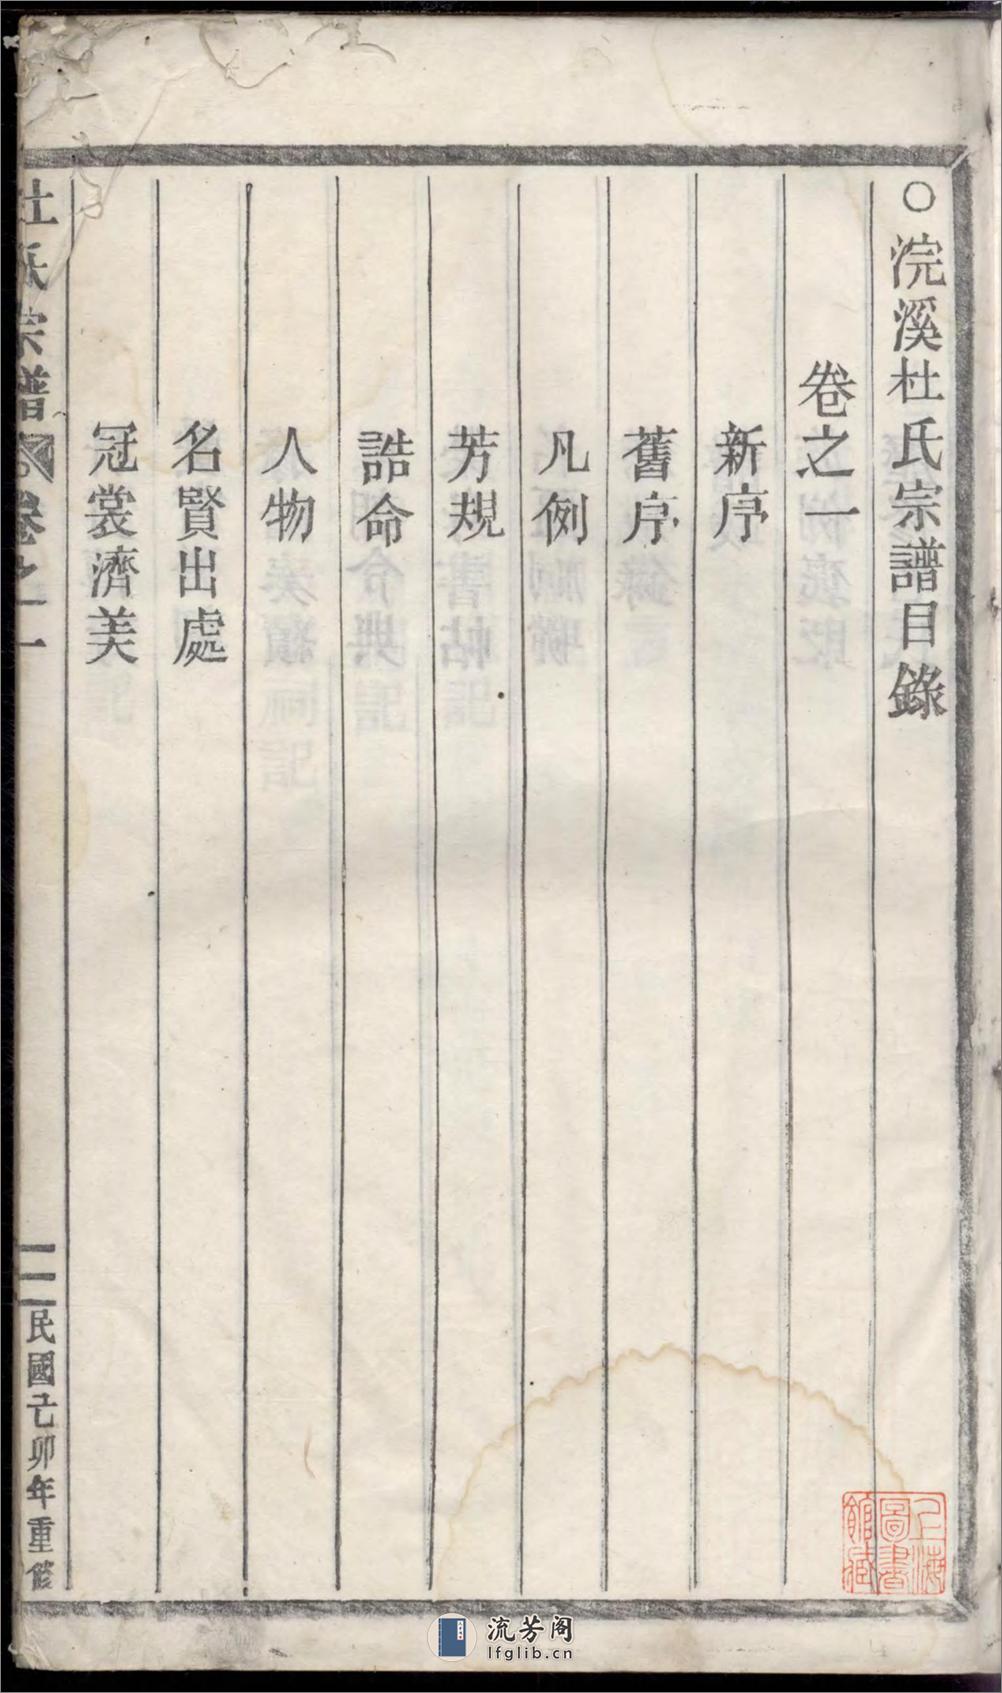 ○浣溪杜氏宗譜目錄
卷之一
新序
舊序
凡例
芳規
誥命
人物
名賢出處
冠裳濟美
杜氏宗譜 卷之一 二 民國己卯年重修
上海圖書館藏
流芳阁
lfglib.cn